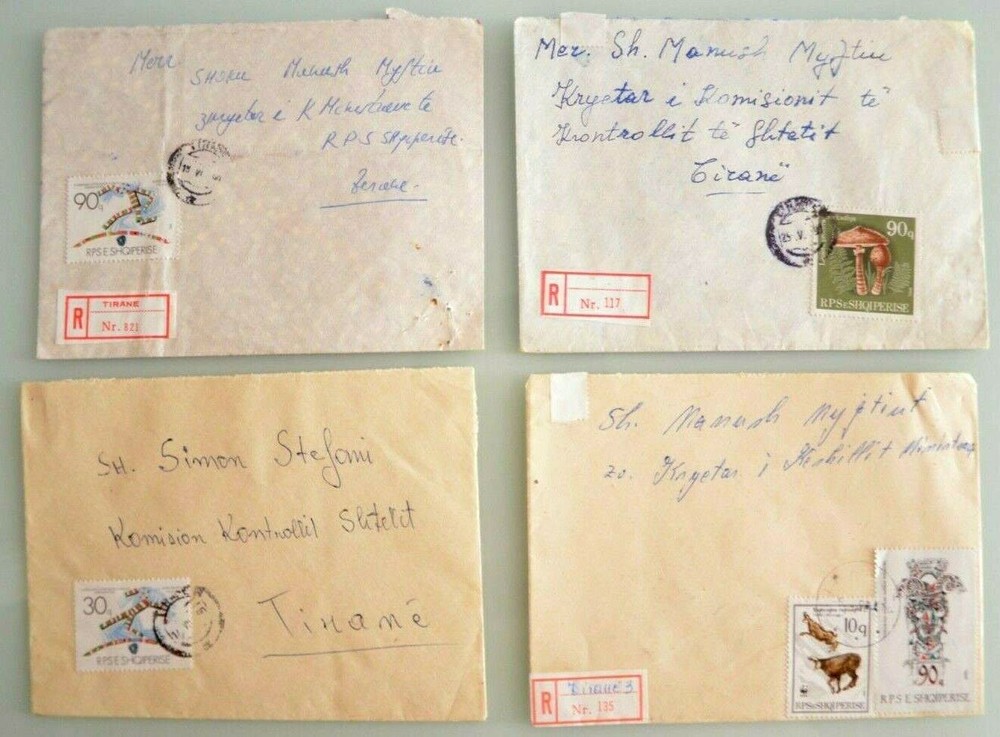 Merr
SHOKU Manush Myftiu
zv kryetar i K Ministrave të
RPS Shqiperisë.
Tirane.
90q
RPS E SHQIPERISE
R
TIRANE
Nr. 821
Mer. Sh. Manush Myftiu
Kryetar i Komisionit të
Kontrollit të Shtetit
Tiranë
90q
RPS E SHQIPERISE
R
Nr. 117
SH. Simon Stefani
Komision Kontrollit Shtetit
Tiranë
30q
RPS E SHQIPERISE
Sh. Manush Myftiut
zv. Kryetar i Këshillit Ministrave
10q
RPS E SHQIPERISE
90q
RPS E SHQIPERISE
R
Tirane 3
Nr. 135